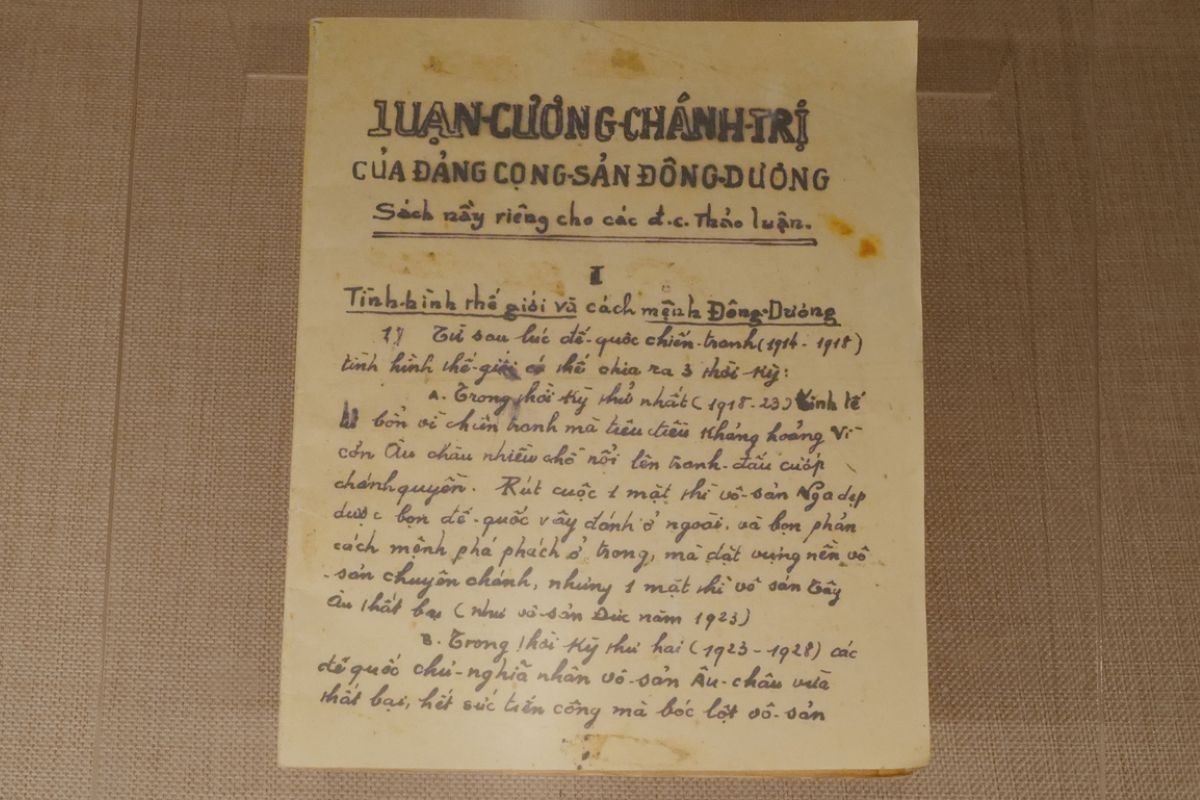 LUẬN-CƯƠNG-CHÁNH-TRỊ
CỦA ĐẢNG CỌNG-SẢN ĐÔNG-DƯƠNG
Sách nầy riêng cho các đ.c. Thảo luận.
I
Tình-hình thế giới và cách mệnh Đông-Dương
1) Từ sau lúc đế-quốc chiến-tranh (1914-1918)
tình hình thế-giới có thể chia ra 3 thời kỳ:
A. Trong thời kỳ thứ nhất (1918-23) kinh tế
bổn vì chiến tranh mà tiêu điều khủng hoảng vì
cớn Âu châu nhiều chỗ nổi lên tranh-đấu cướp
chánh quyền. Rút cuộc 1 mặt thì vô-sản Nga dẹp
được bọn đế-quốc vây đánh ở ngoài, và bọn phản
cách mệnh phá phách ở trong, mà đặt vựng nền vô
-sản chuyên chánh, nhưng 1 mặt thì vô sản Tây
Âu thất bại (như vô-sản Đức năm 1923)
B. Trong thời kỳ thứ hai (1923-1928) các
đế quốc chủ-nghĩa nhân vô-sản Âu-châu vừa
thất bại, hết sức tấn công mà bóc lột vô-sản